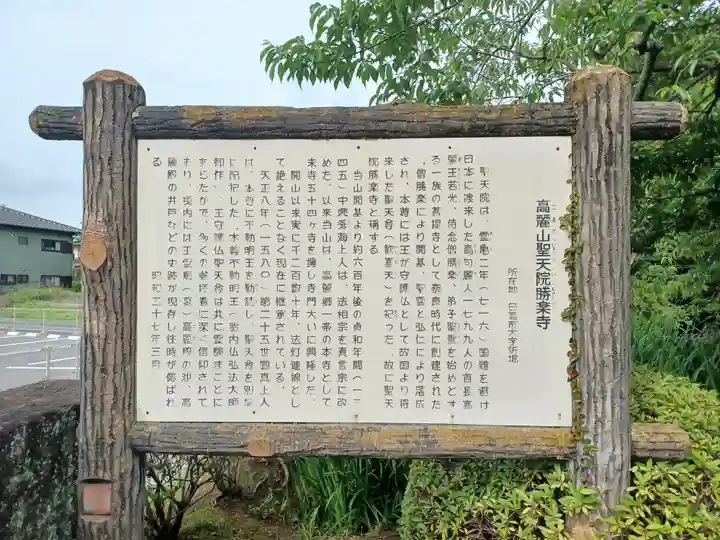 高麗山聖天院勝楽寺
所在地 日高市大字新堀
聖天院は、霊亀二年(七一六)国難を避け
日本に渡来した高句麗人一七九九人の首長高
麗王若光、侍念僧勝楽、弟子聖雲を始めとす
る一族の菩提寺として奈良時代に創建された
。僧勝楽により開基、聖雲と弘仁により落成
され、本尊には王が守護仏として故国より将
来した聖天尊(歓喜天)を祀った 故に聖天
院勝楽寺と称する
当山開基より約六百年後の貞和年間(一三
四五)中興秀海上人は、法相宗を真言宗に改
めた、以来当山は、高麗郷一帯の本寺として
末寺五十四ヶ寺を擁し寺門大いに興隆した、
開山以来実に千二百数十年、法灯連綿とし
て絶えることなく現在に継承されている。
天正八年(一五八〇)第二十五世圓真上人
は、本尊に不動明王を勧請し、聖天尊を別壇
に配祀した、本尊不動明王(胎内仏弘法大師
御作)、王守護仏聖天尊は共に霊験まことに
あらたかで、多くの参拝者に深く信仰されて
おり、境内には王聖廟(墓)高麗殿の池、高
麗殿の井戸などの史跡が現存し往時が偲ばれ
る
昭和五十七年三月